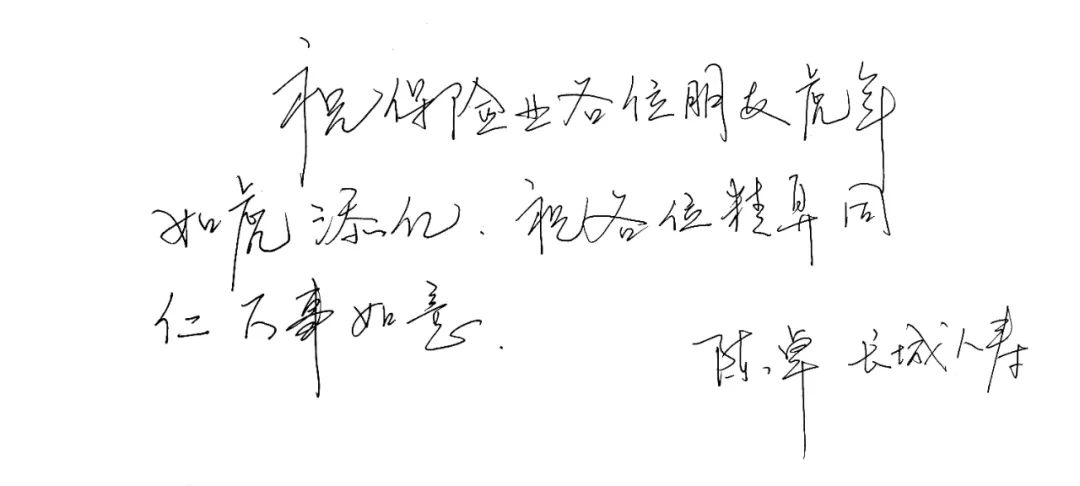 祝保险业各位朋友虎年
如虎添亿. 祝各位精算同
仁百事如意.
陈卓 长城人寿